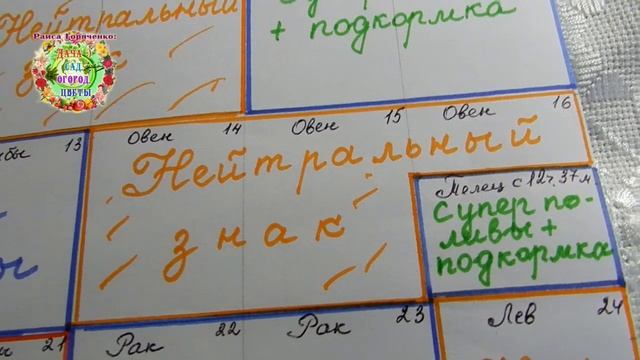 Нейтральный
знак
супер
+ подкормка
Раиса Горяченко:
ДАЧА
САД,
ОГОРОД,
ЦВЕТЫ.
13
Овен 14
Овен 15
Овен 16
Нейтральный
знак
Телец с 12ч.37м.
супер по-
ливы +
подкормка
21
Рак 22
Рак 23
Лев 24